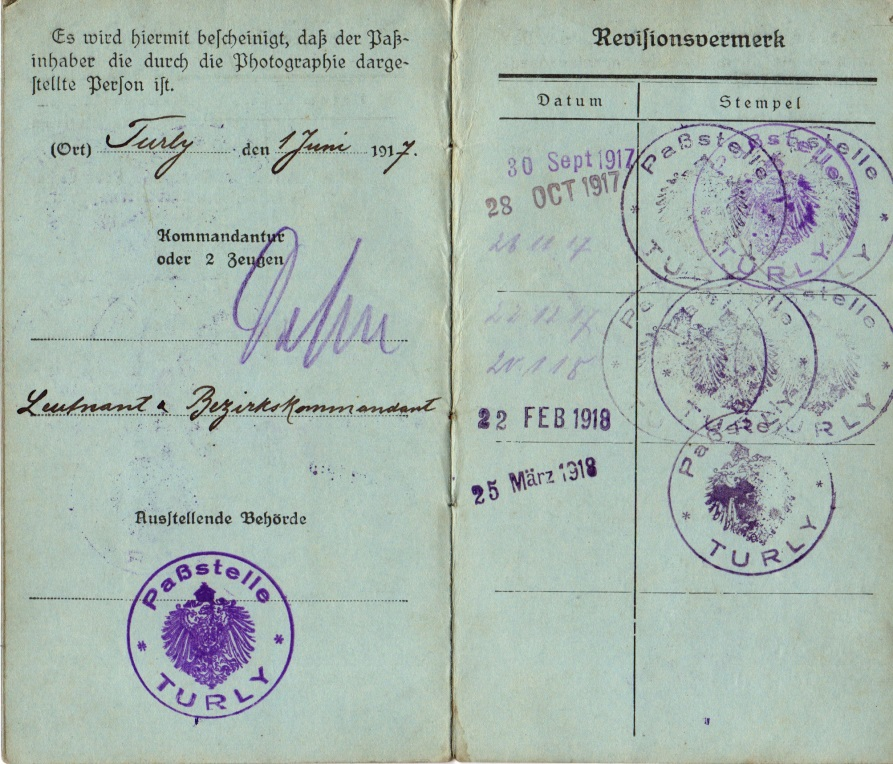 Es wird hiermit bescheinigt, daß der Paß-
inhaber die durch die Photographie darge-
stellte Person ist.
(Ort) Turly den 1 Juni 1917.
Kommandantur
oder 2 Zeugen
Leutnant & Bezirkskommandant
Ausstellende Behörde
Paßstelle
TURLY
Revisionsvermerk
Datum Stempel
30 Sept 1917
28 OCT 1917
Paßstelle
TURLY
Paßstelle
TURLY
Paßstelle
TURLY
26 11 17
22 12 17
20 1 18
22 FEB 1918
25 März 1918
Paßstelle
TURLY